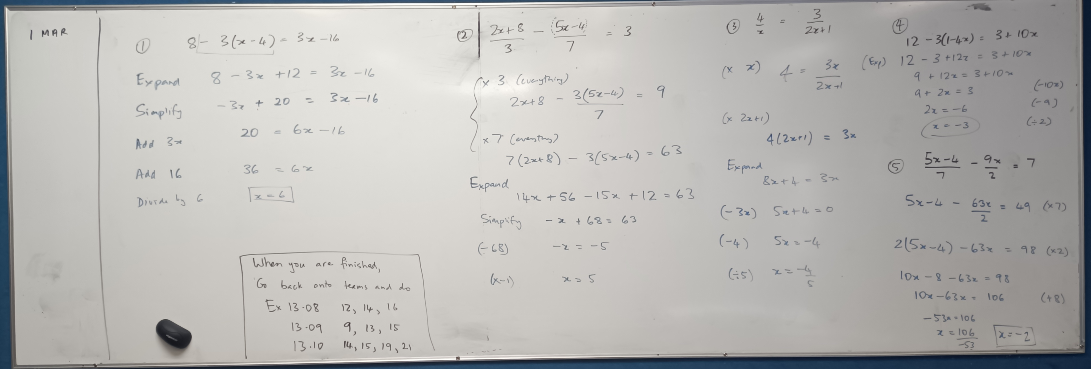 1 MAR
① 8 - 3(x-4) = 3x-16
Expand 8 - 3x + 12 = 3x - 16
Simplify -3x + 20 = 3x - 16
Add 3x 20 = 6x - 16
Add 16 36 = 6x
Divide by 6 x = 6
When you are finished,
Go back onto teams and do
Ex 13.08 12, 14, 16
13.09 9, 13, 15
13.10 14, 15, 19, 21
② (2x+8)/3 - (5x-4)/7 = 3
x 3 (everything)
2x+8 - 3(5x-4)/7 = 9
x 7 (everything)
7(2x+8) - 3(5x-4) = 63
Expand
14x + 56 - 15x + 12 = 63
Simplify -x + 68 = 63
(-68) -x = -5
(x-1) x = 5
③ 4/x = 3/(2x+1)
(x x) 4 = 3x/(2x+1)
(x 2x+1)
4(2x+1) = 3x
Expand
8x + 4 = 3x
(-3x) 5x + 4 = 0
(-4) 5x = -4
(÷5) x = -4/5
④
12 - 3(1-4x) = 3 + 10x
(Exp) 12 - 3 + 12x = 3 + 10x
9 + 12x = 3 + 10x
9 + 2x = 3 (-10x)
2x = -6 (-9)
x = -3 (÷2)
⑤ (5x-4)/7 - 9x/2 = 7
5x-4 - 63x/2 = 49 (x7)
2(5x-4) - 63x = 98 (x2)
10x - 8 - 63x = 98
10x - 63x = 106 (+8)
-53x = 106
x = 106/-53 x = -2